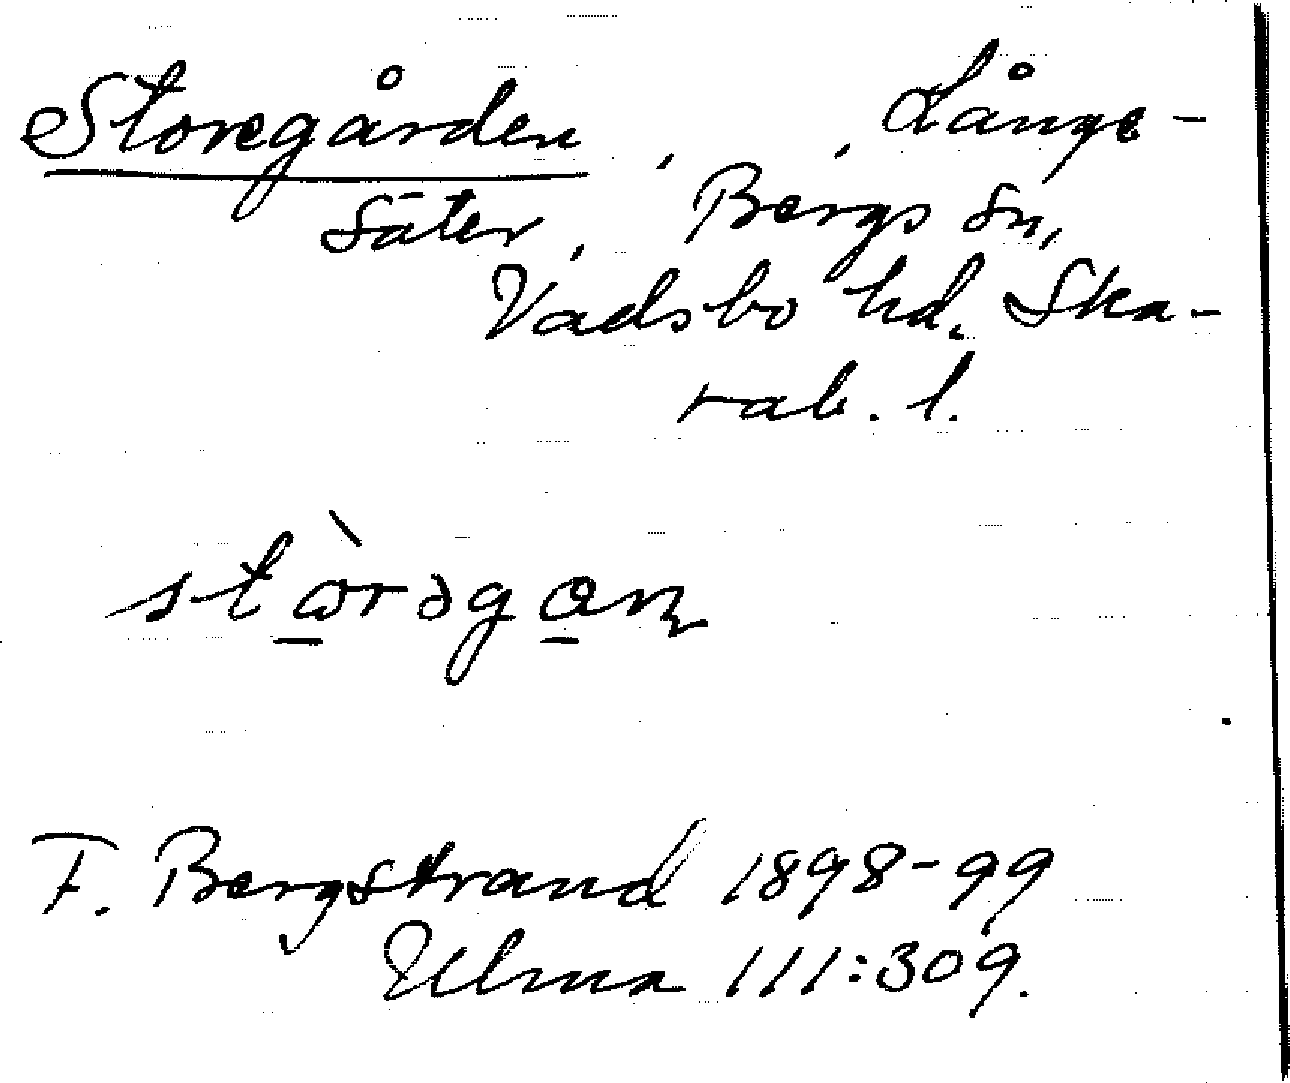 Storegården, , Långe-
säter, Bergs sn,
Vadsbo hd. Ska-
rab. l.
stɷ̀rəgɑn
F. Bergstrand 1898-99
Ulma 111:309.